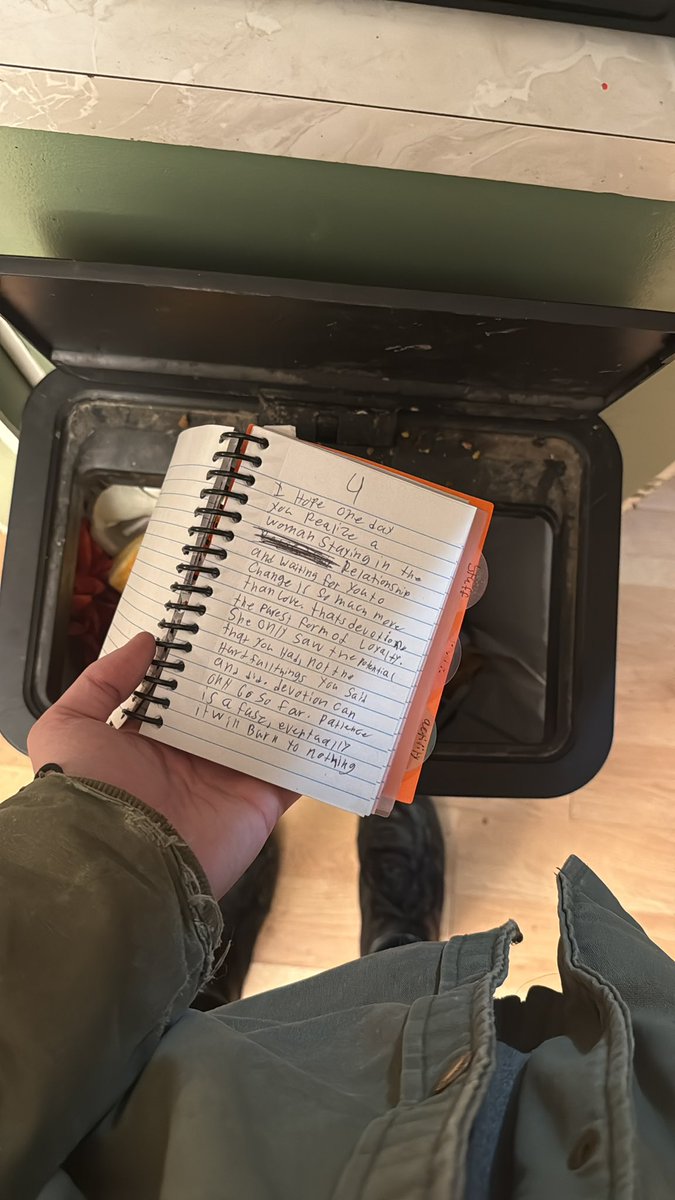 4
I Hope one day
you Realize a
woman staying in the
Relationship
and waiting for you to
Change is so much more
than Love. thats devotion
the purest form of Loyalty.
She only saw the potential
that you Had, not the
Hurtfull things you said
and did. devotion can
only Go So far. patience
is a fuse, eventually
it will Burn to nothing